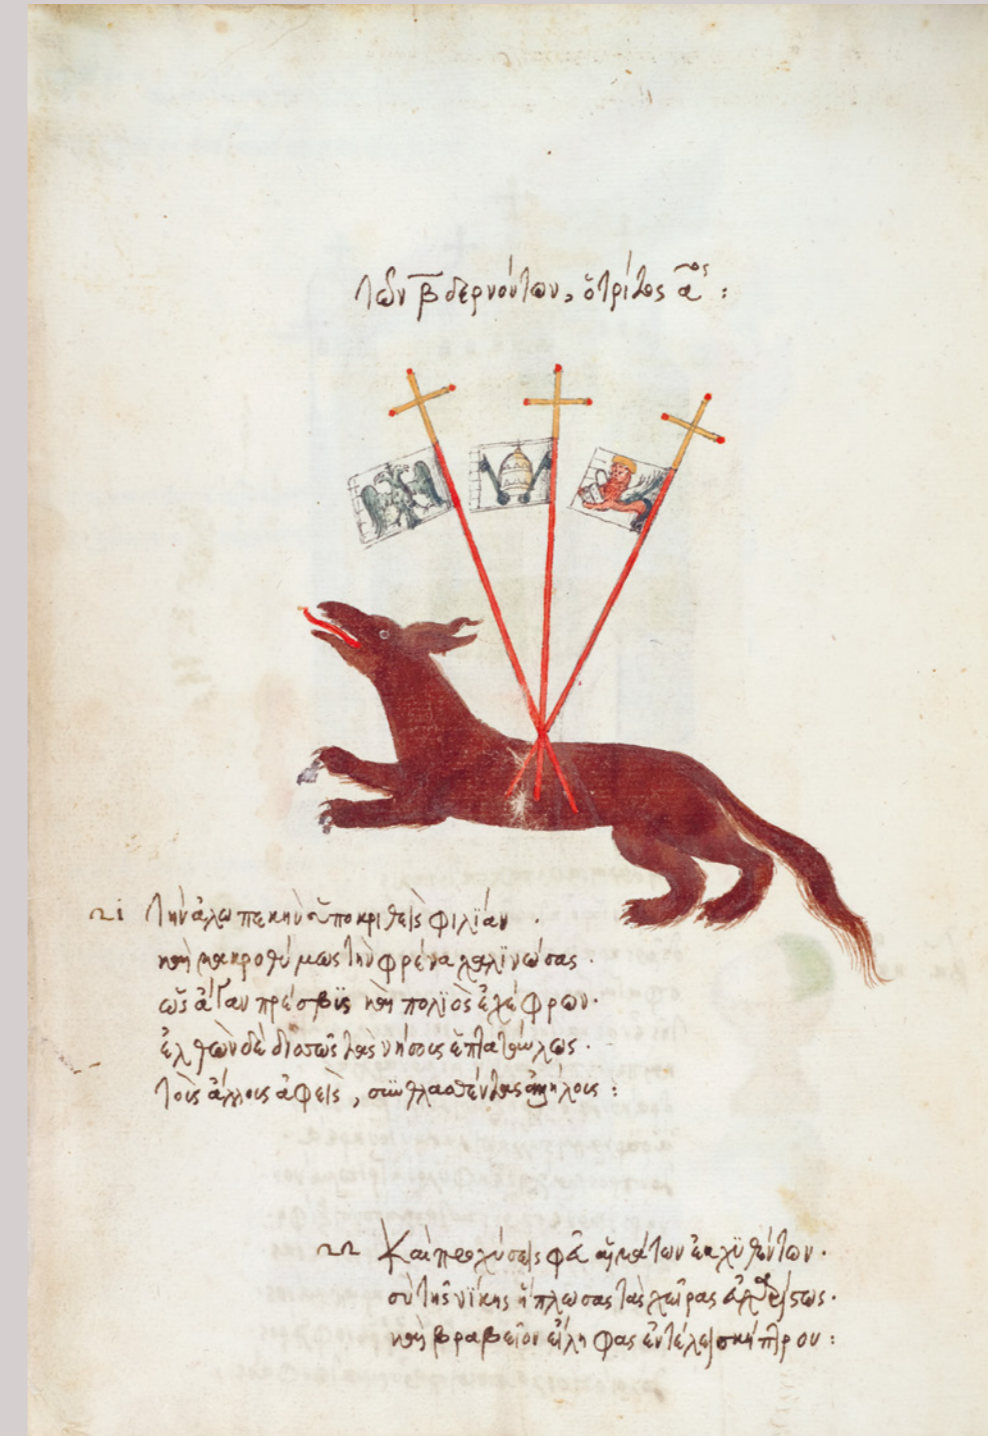 τῶν β̅ δερνόντων, ὁ τρίτος α^ος :
21 Τὴν ἀλωπεκὴν ὑποκριθεὶς φιλίαν ·
καὶ μακροθύμως τὴν φρένα χαλϊνώσας ·
ὡς ἄγαν πρέσβϋς καὶ πολϊὸς ἐχέφρων ·
ἐλθὼν δὲ τὰς νήσους
τοὺς ἄλλους ἀφεὶς, συνθλασθέντας ἀλλήλοις :
22 Καὶ αἱμάτων ἐκχϋθέντων ·
σὺ τῆς νίκης ἥπλωσας τὰς χεῖρας
καὶ βραβεῖον εἴληφας ἐντέλει σκήπτρου :